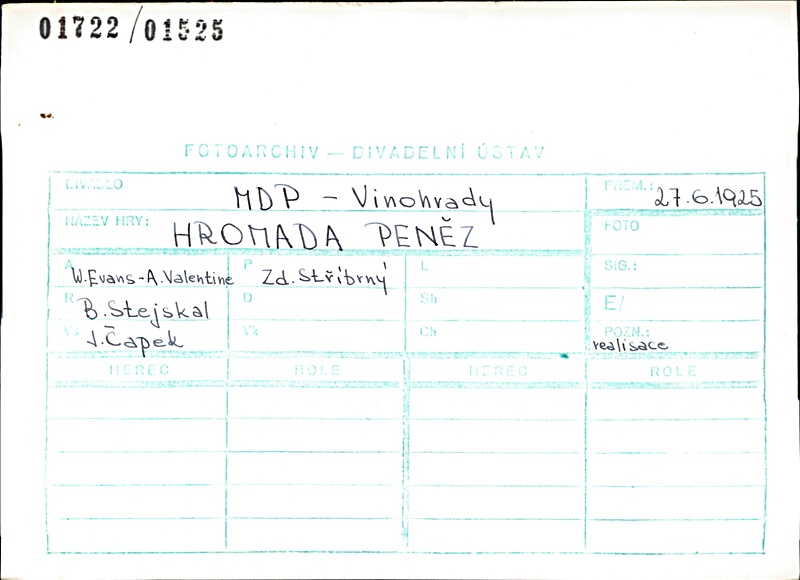 01722/01525
FOTOARCHIV — DIVADELNÍ ÚSTAV
DIVADLO MDP - Vinohrady PREM.: 27.6.1925
NÁZEV HRY: HROMADA PENĚZ FOTO
A W.Evans-A.Valentine P Zd.Stříbrný L SIG.:
R B.Stejskal D Sh E/
J.Čapek Vk Ch POZN.: realisace
HEREC ROLE HEREC ROLE